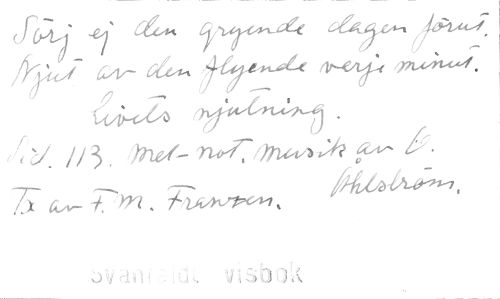 Sörj ej den gryende dagen förut.
Njut av den flyende varje minut.
Livets njutning.
Sid. 113. Mel-not. Musik av O.
Åhlström.
Tx av F. M. Franzen.
Svanfeldt visbok